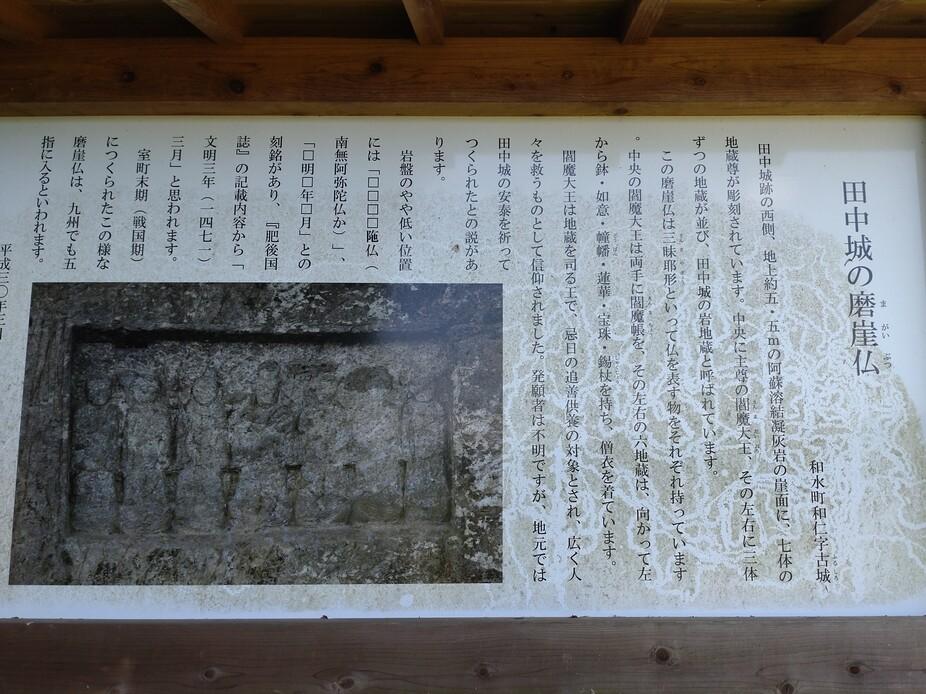 田中城の磨崖仏
まがいぶつ
和水町和仁字古城
田中城跡の西側、地上約五・五mの阿蘇溶結凝灰岩の崖面に、七体の
地蔵尊が彫刻されています。中央に主尊の閻魔大王、その左右に三体
ずつの地蔵が並び、田中城の岩地蔵と呼ばれています。
この磨崖仏は三昧耶形といって仏を表す物をそれぞれ持っています
。中央の閻魔大王は両手に閻魔帳を、その左右の六地蔵は、向かって左
から鉢・如意・幢幡・蓮華・宝珠・錫杖を持ち、僧衣を着ています。
閻魔大王は地蔵を司る王で、忌日の追善供養の対象とされ、広く人
々を救うものとして信仰されました。発願者は不明ですが、地元では
田中城の安泰を祈って
つくられたとの説があ
ります。
岩盤のやや低い位置
には「□□□□陁仏（
南無阿弥陀仏か）」、
「□明□年□月」との
刻銘があり、『肥後国
誌』の記載内容から「
文明三年（一四七一）
三月」と思われます。
室町末期（戦国期）
につくられたこの様な
磨崖仏は、九州でも五
指に入るといわれます。
平成三〇年三月